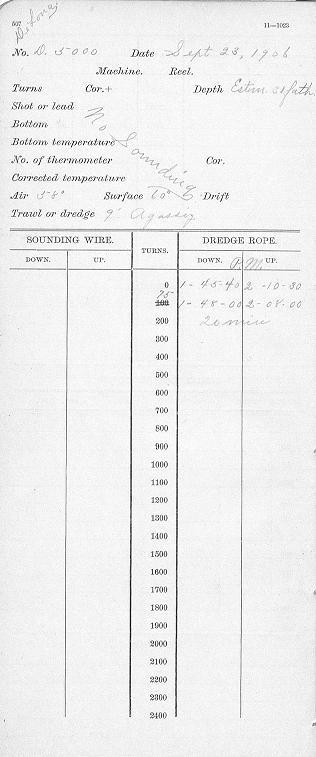 507 11—1023
No. D. 5000 Date Sept 23, 1906
Machine. Reel.
Turns Cor. + Depth Estim 31 fath.
Shot or lead
Bottom
Bottom temperature
No Sounding
No. of thermometer Cor.
Corrected temperature
Air 58° Surface 60° Drift
Trawl or dredge 9' Agassiz
SOUNDING WIRE. TURNS. DREDGE ROPE.
DOWN. UP. DOWN. P.M. UP.
0 1-45-40 2-10-30
75
100 1-48-00 2-08-00
200 20 min
300
400
500
600
700
800
900
1000
1100
1200
1300
1400
1500
1600
1700
1800
1900
2000
2100
2200
2300
2400